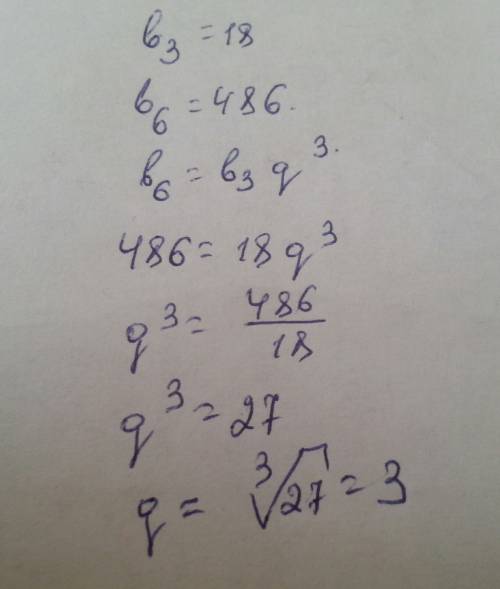 b₃ = 18
b₆ = 486.
b₆ = b₃ q³.
486 = 18q³
q³ = 486/18
q³ = 27
q = ³√27 = 3